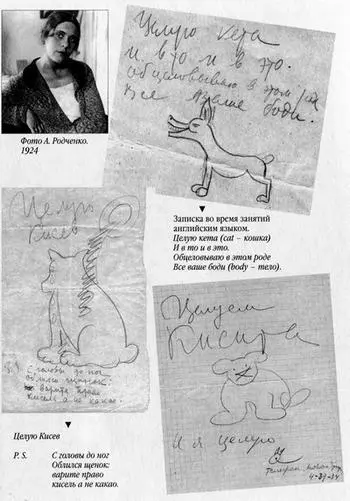 Целую кета
и в то и в это.
обцеловываю в этом роде
Все ваше боди.
Фото А. Родченко.
1924
Записка во время занятий
английским языком.
Целую кета (cat – кошка)
И в то и в это.
Обцеловываю в этом роде
Все ваши боди (body – тело).
Целую
Кисев
P.S. С головы до ног
облился щенок:
варите право
кисель а не какао.
Целую Кисев
P. S. С головы до ног
Облился щенок:
варите право
кисель а не какао.
Целуем
Кисита
и я целую